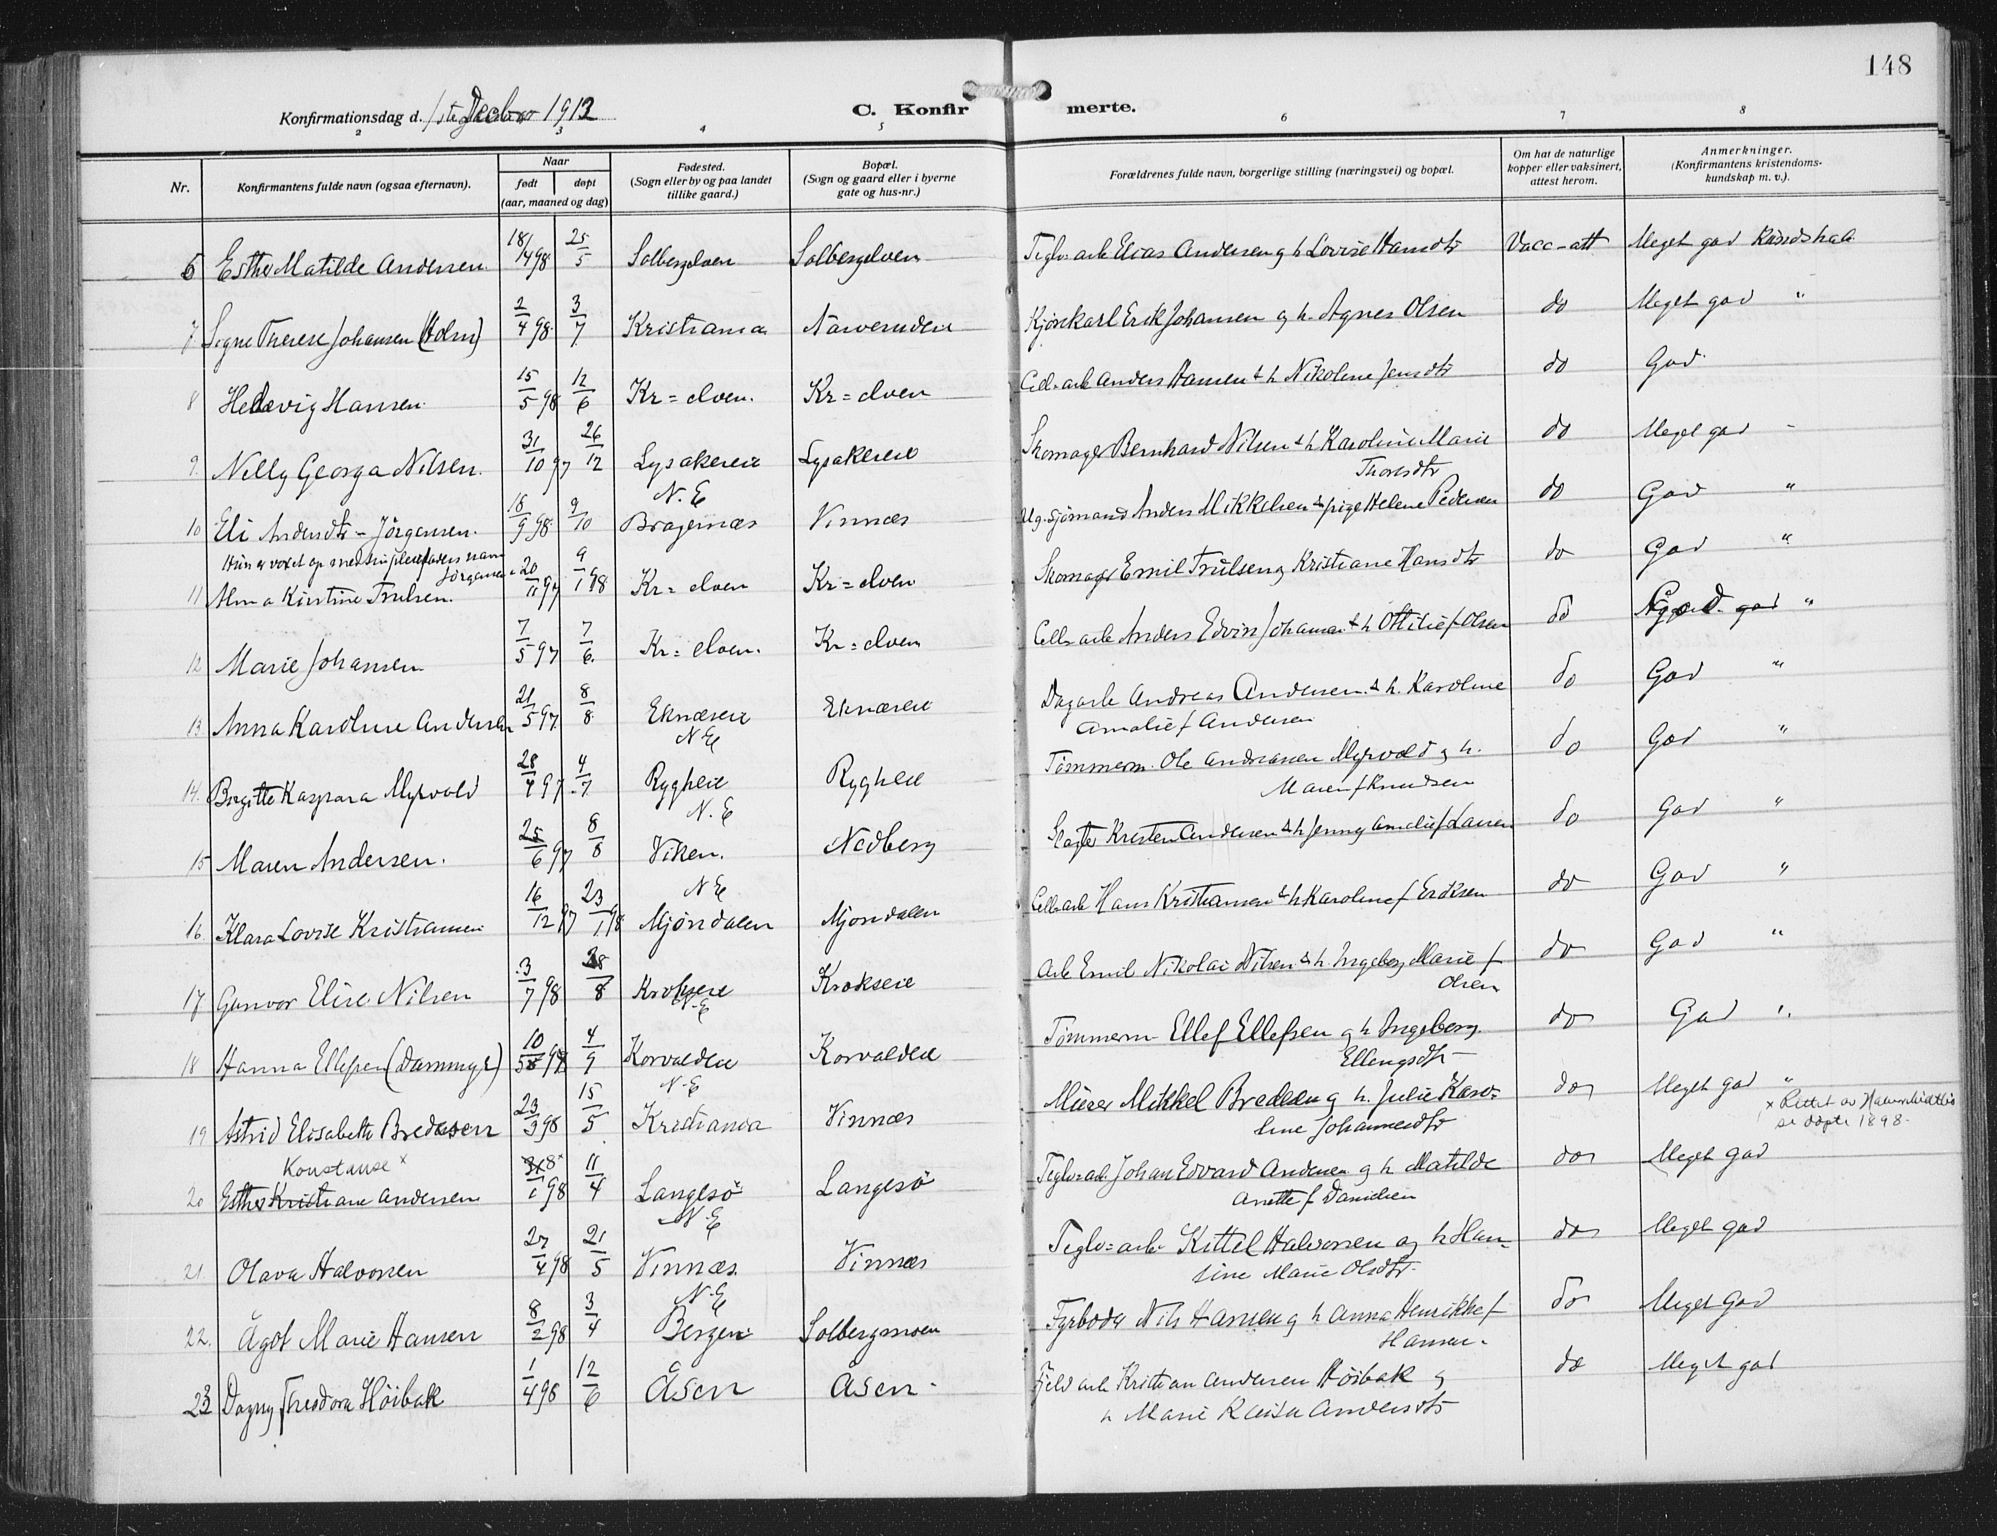 148
Konfirmationsdag d. 1ste Decbr 1912
C. Konfirmerte.
2 3 4 5 6 7 8
Nr. Konfirmantens fulde navn (ogsaa efternavn). Naar født døpt (aar, maaned og dag) Fødested. (Sogn eller by og paa landet tillike gaard.) Bopæl. (Sogn og gaard eller i byerne gate og hus-nr.) Forældrenes fulde navn, borgerlige stilling (næringsvei) og bopæl. Om hat de naturlige kopper eller vaksinert, attest herom. Anmerkninger. (Konfirmantens kristendomskundskap m. v.).
6 Esther Matilde Andersen 18/4 98 25/5 Solbergelven Solbergelven Teglv=arb Elias Andersen og h Lovise Hansdtr Vacc-att Meget god Kundskab
7 Signe Therese Johansen (Holm) 2/4 98 3/7 Kristiania Narverudeie Kjørekarl Erik Johansen og h. Agnes Olsen do Meget god "
8 Hedevig Hansen 15/5 98 12/6 Kr=elven. Kr=elven Cell=arb Anders Hansen & h Nikoline Jensdtr do God
9. Nelly Georga Nilsen. 31/10 97 26/12 Lysakereie N.E Lysakereie Skomager Bernhard Nilsen & h Karoline Marie Thoresdtr do Meget god -
10 Eli Andersdtr - Jörgensen. 18/9 98 9/10 Bragernæs Vinnæs Ug. Sjømand Anders Mikkelsen & pige Helene Pedersen do God "
Hun er voxet op med sin pleiefaders navn Jörgensen
11 Alma Kirstine Trulsen. 20/11 97 9/1 98 Kr=elven Kr=elven Skomager Emil Trulsen og Kristiane Hansdtr do God "
12 Marie Johansen 7/5 97 7/6. Kr=elven. Kr=elven Cellv arb Anders Edvin Johansen & h Ottilie f Olsen do god "
13 Anna Karoline Andersen 21/5 97 8/8 Eknæseie N E Eknæseie Dagarb Andreas Andersen. & h. Karoline Amalie f Andersen do God "
14. Birgitte Kaspara Myrvold 28/4 97 4/7 Ryggheie N. E Ryggheie Tömmerm. Ole Andreassen Myrvold og h. Maren f Knudsen do God "
15 Maren Andersen. 25/6 97 8/8 Viken. N E Nedberg Slagter Kristen Andersen & h Jenny Amalie f Larsen do God "
16. Klara Lovise Kristiansen 16/12 97 23/1 98 Mjøndalen Mjøndalen Cellv arb Hans Kristiansen & h Karoline f Eriksen do God "
17 Gunvor Elise Nilsen 3/7 98 28/8 Krokseie N.E Krokseie Arb Emil Nikolai Nilsen & h Ingeborg Marie f Olsen do God "
18 Hanna Ellefsen (Dammyr) 10/5 98 4/9 Korvaldeie N.E Korvaldeie Tømmerm Ellef Ellefsen og h Ingeborg Ellengsdtr - do God "
19 Astrid Elisabeth Bredesen 23/3 98 15/5 Kristiania Vinnæs Murer Mikkel Bredesen og h. Julie Karoline Johannesdtr do Meget god "
Konstanse x
20 Esther Kristiane Andersen 31/1 98 11/4 Langesö N.E Langesö Teglv=arb Johan Edvard Andersen og h Matilde Anette f Danielsen do Meget god
x Rettet av
se døpte 1898.
21 Olava Halvorsen 27/4 98 21/5 Vinnæs. N.E Vinnæs Teglv=arb Kittel Halvorsen og h Hansine Marie Olsdtr. do Meget god
22. Ågot Marie Hansen 8/2 98 3/4 Bergen Solbergmoen Fyrböder Nils Hansen og h Anna Henrikke f Hansen. do Meget god
23 Dagny Theodora Höibak 1/4 98 12/6 Åsen Åsen. Kristian Andersen Höibak og h Marie Andersdtr do Meget god